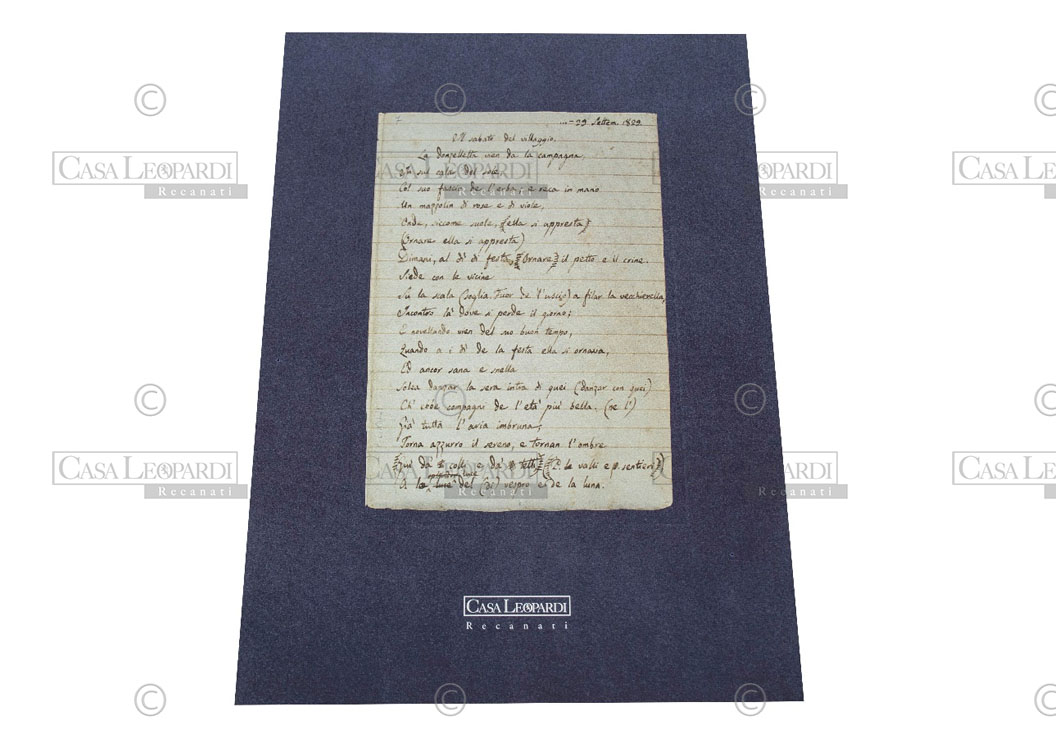 ...-29 Settem. 1829
Il sabato del villaggio.
La donzelletta vien da la campagna,
In sul calar del sole,
Col suo fascio de l'erba; e reca in mano
Un mazzolin di rose e di viole,
Onde, siccome suole, (ella si appresta)
(Ornare ella si appresta)
Dimani, al dì di festa, (Ornare) il petto e il crine.
Siede con le vicine
Su la scala (soglia. Fuor de l'uscio) a filar la vecchierella,
Incontro là dove si perde il giorno;
E novellando vien del suo buon tempo,
Quando a i dì de la festa ella si ornava,
Ed ancor sana e snella
Solea danzar la sera intra di quei (danzar con quei)
Ch'ebbe compagni de l'età più bella. (ne l')
Già tutta l'aria imbruna,
Torna azzurro il sereno, e tornan l'ombre
Giù da colli e da tetti le valli e sentieri
A la luce del vespro e de la luna.
CASA LEOPARDI
Recanati